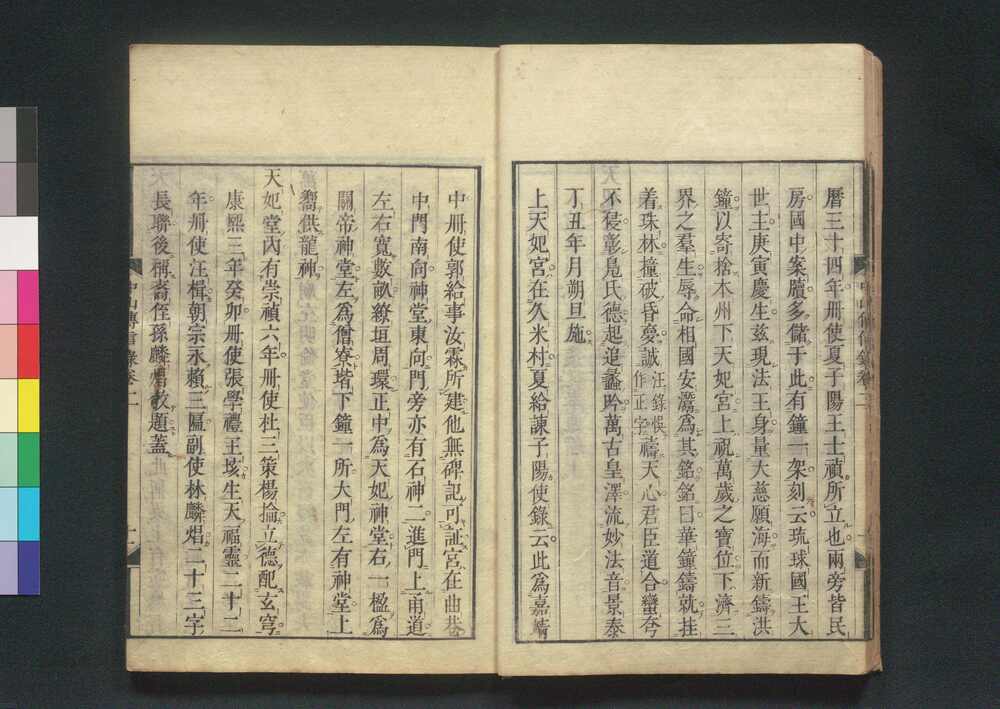 曆三十四年册使夏子陽王士禎所立也兩旁皆民
房國中案牘多儲于此有鐘一架刻云琉球國王大
世主庚寅慶生茲現法王身量大慈願海而新鑄洪
鐘以寄捨本州下天妃宮上祝萬歲之寶位下濟三
界之羣生辱命相國安潛爲其銘銘曰華鐘鑄就挂
着珠林撞破昏夢誠汪錄悞作正字禱天心君臣道合蠻夸
不侵彰鳧氏德起追蠡吟萬古皇澤流妙法音景泰
丁丑年月朔旦施
上天妃宮在久米村夏給諫子陽使錄云此爲嘉靖
中册使郭給事汝霖所建他無碑記可証宮在曲巷
中門南向神堂東向門旁亦有石神二進門上甬道
左右寬數畝繚垣周環正中爲天妃神堂右一楹爲
關帝神堂左爲僧寮堦下鐘一所大門左有神堂上
嚮供龍神
天妃堂內有崇禎六年册使杜三策楊掄立德配玄穹
康熙三年癸卯册使張學禮王垓生天福靈二十二
年册使汪楫朝宗永賴三匾副使林麟焻二十三字
長聯後稱裔侄孫麟焻敬題蓋
中山傳信錄卷二